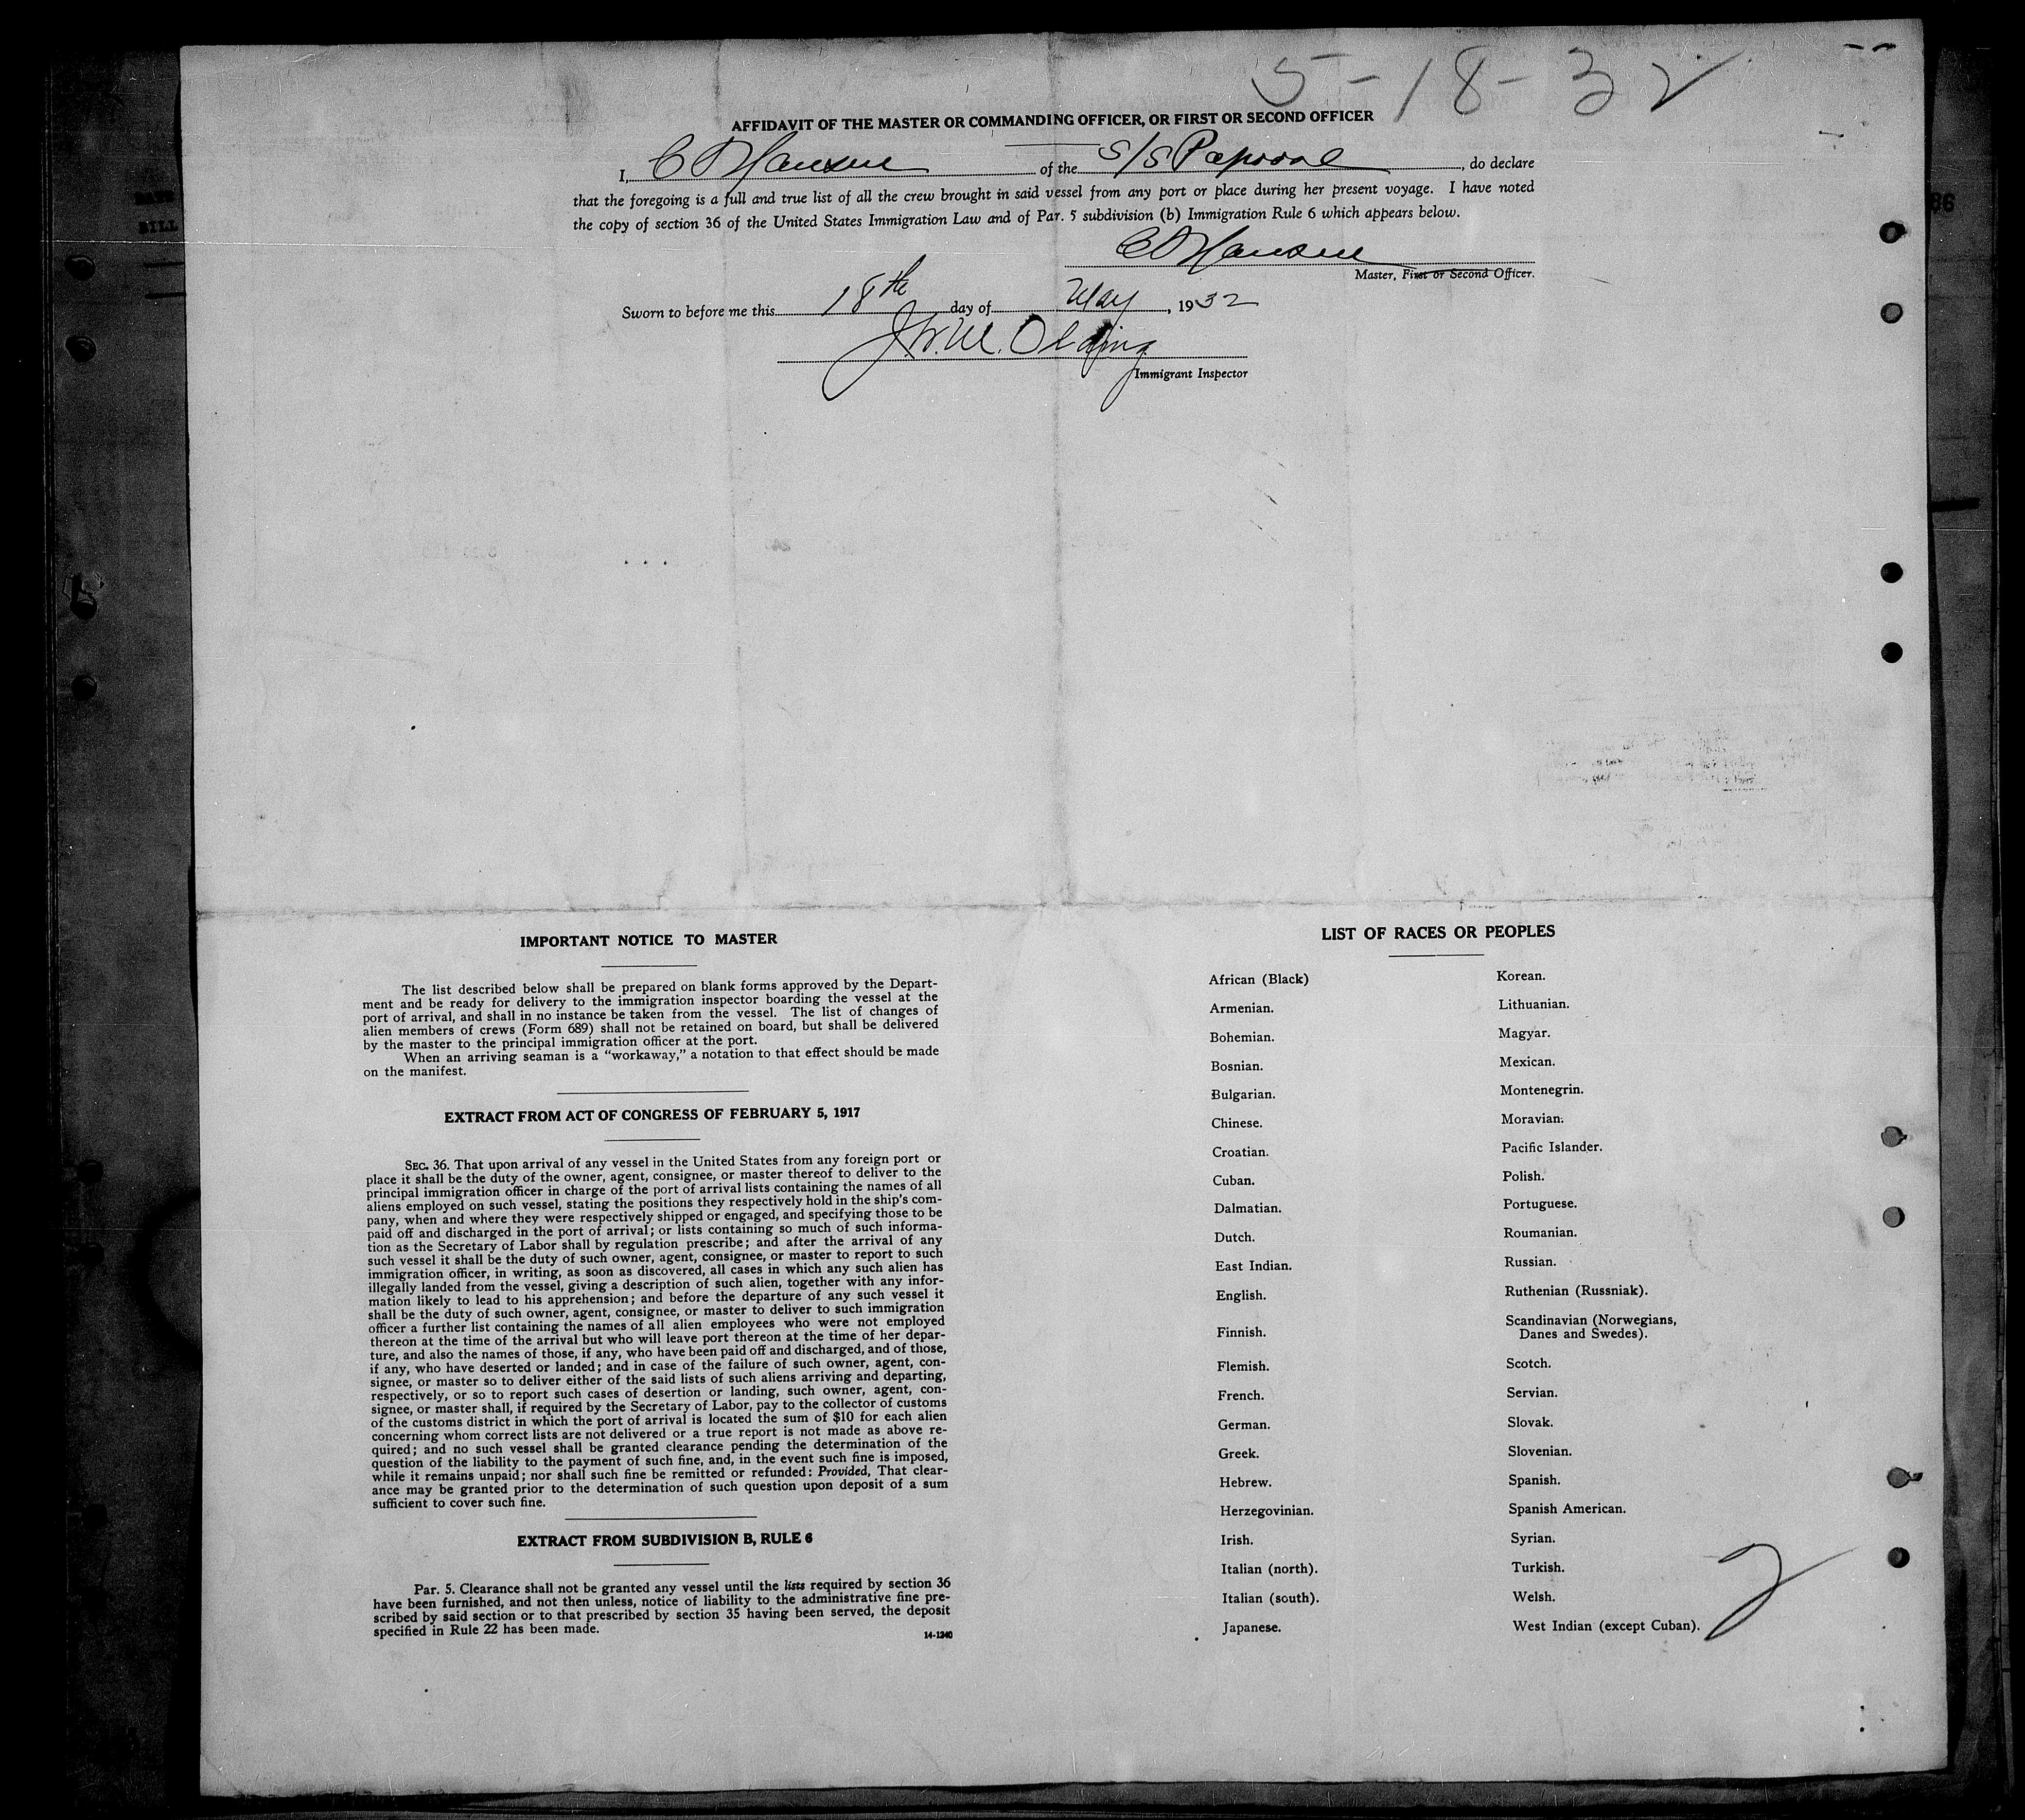 5-18-32
AFFIDAVIT OF THE MASTER OR COMMANDING OFFICER, OR FIRST OR SECOND OFFICER
I, C Hansen of the S/S , do declare
that the foregoing is a full and true list of all the crew brought in said vessel from any port or place during her present voyage. I have noted
the copy of section 36 of the United States Immigration Law and of Par. 5 subdivision (b) Immigration Rule 6 which appears below.
C Hansen
Master, First or Second Officer.
Sworn to before me this 18th day of May, 1932
J.W.M. Olding
Immigrant Inspector
IMPORTANT NOTICE TO MASTER
The list described below shall be prepared on blank forms approved by the Depart-
ment and be ready for delivery to the immigration inspector boarding the vessel at the
port of arrival, and shall in no instance be taken from the vessel. The list of changes of
alien members of crews (Form 689) shall not be retained on board, but shall be delivered
by the master to the principal immigration officer at the port.
When an arriving seaman is a "workaway," a notation to that effect should be made
on the manifest.
EXTRACT FROM ACT OF CONGRESS OF FEBRUARY 5, 1917
SEC. 36. That upon arrival of any vessel in the United States from any foreign port or
place it shall be the duty of the owner, agent, consignee, or master thereof to deliver to the
principal immigration officer in charge of the port of arrival lists containing the names of all
aliens employed on such vessel, stating the positions they respectively hold in the ship's com-
pany, when and where they were respectively shipped or engaged, and specifying those to be
paid off and discharged in the port of arrival; or lists containing so much of such informa-
tion as the Secretary of Labor shall by regulation prescribe; and after the arrival of any
such vessel it shall be the duty of such owner, agent, consignee, or master to report to such
immigration officer, in writing, as soon as discovered, all cases in which any such alien has
illegally landed from the vessel, giving a description of such alien, together with any infor-
mation likely to lead to his apprehension; and before the departure of any such vessel it
shall be the duty of such owner, agent, consignee, or master to deliver to such immigration
officer a further list containing the names of all alien employees who were not employed
thereon at the time of the arrival but who will leave port thereon at the time of her depar-
ture, and also the names of those, if any, who have been paid off and discharged, and of those,
if any, who have deserted or landed; and in case of the failure of such owner, agent, con-
signee, or master so to deliver either of the said lists of such aliens arriving and departing,
respectively, or so to report such cases of desertion or landing, such owner, agent, con-
signee, or master shall, if required by the Secretary of Labor, pay to the collector of customs
of the customs district in which the port of arrival is located the sum of $10 for each alien
concerning whom correct lists are not delivered or a true report is not made as above re-
quired; and no such vessel shall be granted clearance pending the determination of the
question of the liability to the payment of such fine, and, in the event such fine is imposed,
while it remains unpaid; nor shall such fine be remitted or refunded: Provided, That clear-
ance may be granted prior to the determination of such question upon deposit of a sum
sufficient to cover such fine.
EXTRACT FROM SUBDIVISION B, RULE 6
Par. 5. Clearance shall not be granted any vessel until the lists required by section 36
have been furnished, and not then unless, notice of liability to the administrative fine pre-
scribed by said section or to that prescribed by section 35 having been served, the deposit
specified in Rule 22 has been made.
14-1240
LIST OF RACES OR PEOPLES
African (Black)
Armenian.
Bohemian.
Bosnian.
Bulgarian.
Chinese.
Croatian.
Cuban.
Dalmatian.
Dutch.
East Indian.
English.
Finnish.
Flemish.
French.
German.
Greek.
Hebrew.
Herzegovinian.
Irish.
Italian (north).
Italian (south).
Japanese.
Korean.
Lithuanian.
Magyar.
Mexican.
Montenegrin.
Moravian.
Pacific Islander.
Polish.
Portuguese.
Roumanian.
Russian.
Ruthenian (Russniak).
Scandinavian (Norwegians,
Danes and Swedes).
Scotch.
Servian.
Slovak.
Slovenian.
Spanish.
Spanish American.
Syrian.
Turkish.
Welsh.
West Indian (except Cuban).
2